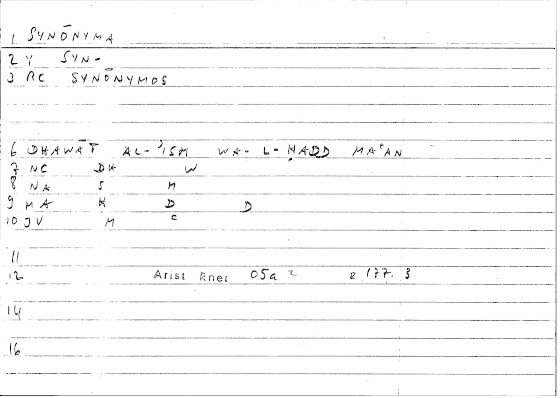 1 SYNŌNYMA
2 Y SYN-
3 RC SYNŌNYMOS
6 DHAWĀT AL-ʾISM WA-L-ḤADD MAʿAN
7 NC DH W
8 NA S M
9 MA H D D
10 JV M C
11
12 Arist Rhet 05a 2 177.3
14
16